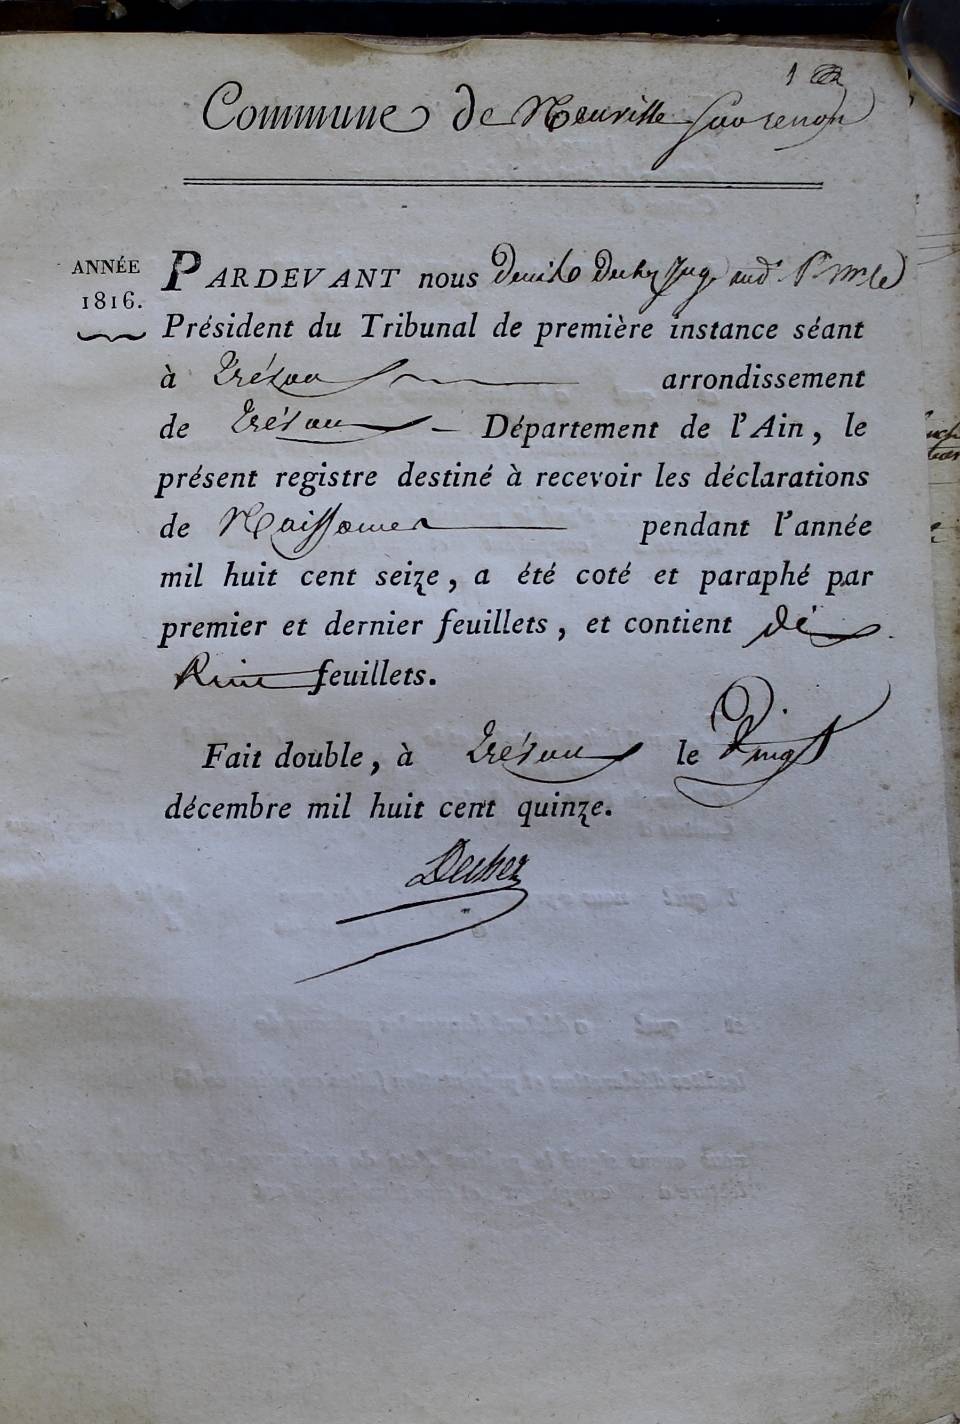 1
Commune de Neuville sur renon
ANNÉE
1816.
PARDEVANT nous Juge
Président du Tribunal de première instance séant
à Trévoux arrondissement
de Trévoux — Département de l'Ain, le
présent registre destiné à recevoir les déclarations
de Naissances pendant l'année
mil huit cent seize, a été coté et paraphé par
premier et dernier feuillets, et contient
feuillets.
Fait double, à Trévoux le Vingt
décembre mil huit cent quinze.